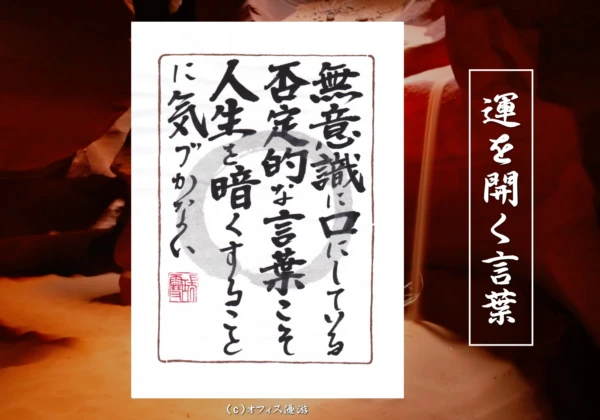 運を開く言葉
無意識に口にしている
否定的な言葉こそ
人生を暗くすること
に気づかない
(c)オフィス優游